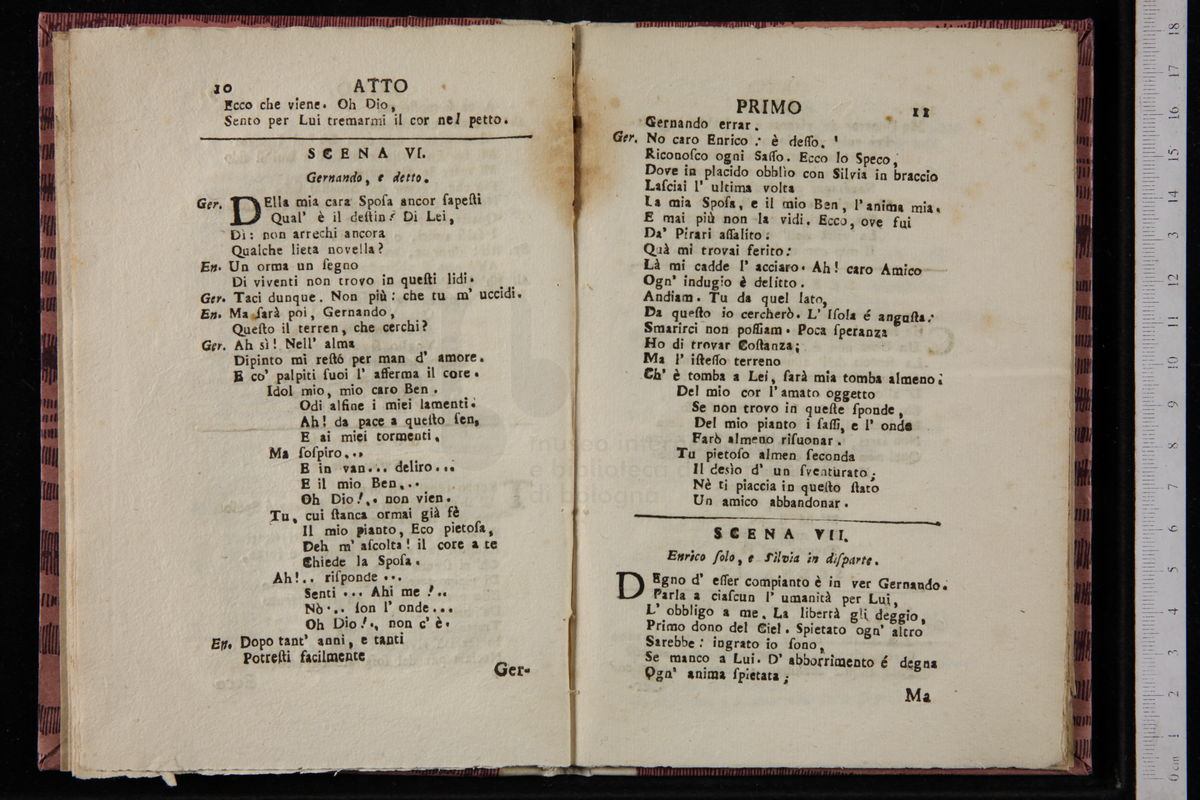 10 ATTO
Ecco che viene. Oh Dio,
Sento per Lui tremarmi il cor nel petto.
SCENA VI.
Gernando, e detto.
Ger. DElla mia cara Spoſa ancor ſapeſti
Qual' è il deſtin? Di Lei,
Di: non arrechi ancora
Qualche lieta novella?
En. Un orma un ſegno
Di viventi non trovo in queſti lidi.
Ger. Taci dunque. Non più: che tu m' uccidi.
En. Ma ſarà poi, Gernando,
Queſto il terren, che cerchi?
Ger. Ah sì! Nell' alma
Dipinto mi reſtò per man d' amore.
E co' palpiti ſuoi l' afferma il core.
Idol mio, mio caro Ben.
Odi alfine i miei lamenti:
Ah! da pace a queſto ſen,
E ai miei tormenti.
Ma ſoſpiro...
E in van... deliro...
E il mio Ben...
Oh Dio!.. non vien.
Tu, cui ſtanca ormai già fè
Il mio pianto, Eco pietoſa,
Deh m' aſcolta! il core a te
Chiede la Spoſa.
Ah!.. riſponde ...
Senti ... Ahi me!..
Nò... ſon l' onde...
Oh Dio!.. non c' è.
En. Dopo tant' anni, e tanti
Potreſti facilmente
Ger-
PRIMO 11
Gernando errar.
Ger. No caro Enrico: è deſſo.
Riconoſco ogni Saſſo. Ecco lo Speco,
Dove in placido obblìo con Silvia in braccio
Laſciai l' ultima volta
La mia Spoſa, e il mio Ben, l'anima mia.
E mai più non la vidi. Ecco, ove fui
Da' Pirari aſſalito:
Quà mi trovai ferito:
Là mi cadde l' acciaro. Ah! caro Amico
Ogn' indugio è delitto.
Andiam. Tu da quel lato,
Da queſto io cercherò. L' Iſola é anguſta:
Smarirci non poſſiam. Poca ſperanza
Ho di trovar Coſtanza;
Ma l' iſteſſo terreno
Ch' è tomba a Lei, ſarà mia tomba almeno.
Del mio cor l'amato oggetto
Se non trovo in queſte ſponde,
Del mio pianto i ſaſſi, e l' onde
Farò almeno riſuonar.
Tu pietoſo almen ſeconda
Il desìo d' un ſventurato;
Nè ti piaccia in queſto ſtato
Un amico abbandonar.
SCENA VII.
Enrico ſolo, e Silvia in diſparte.
DEgno d' eſſer compianto è in ver Gernando.
Parla a ciaſcun l' umanità per Lui,
L' obbligo a me. La libertà gli deggio,
Primo dono del Ciel. Spietato ogn' altro
Sarebbe: ingrato io ſono,
Se manco a Lui. D' abborrimento é degna
Ogn' anima ſpietata;
Ma